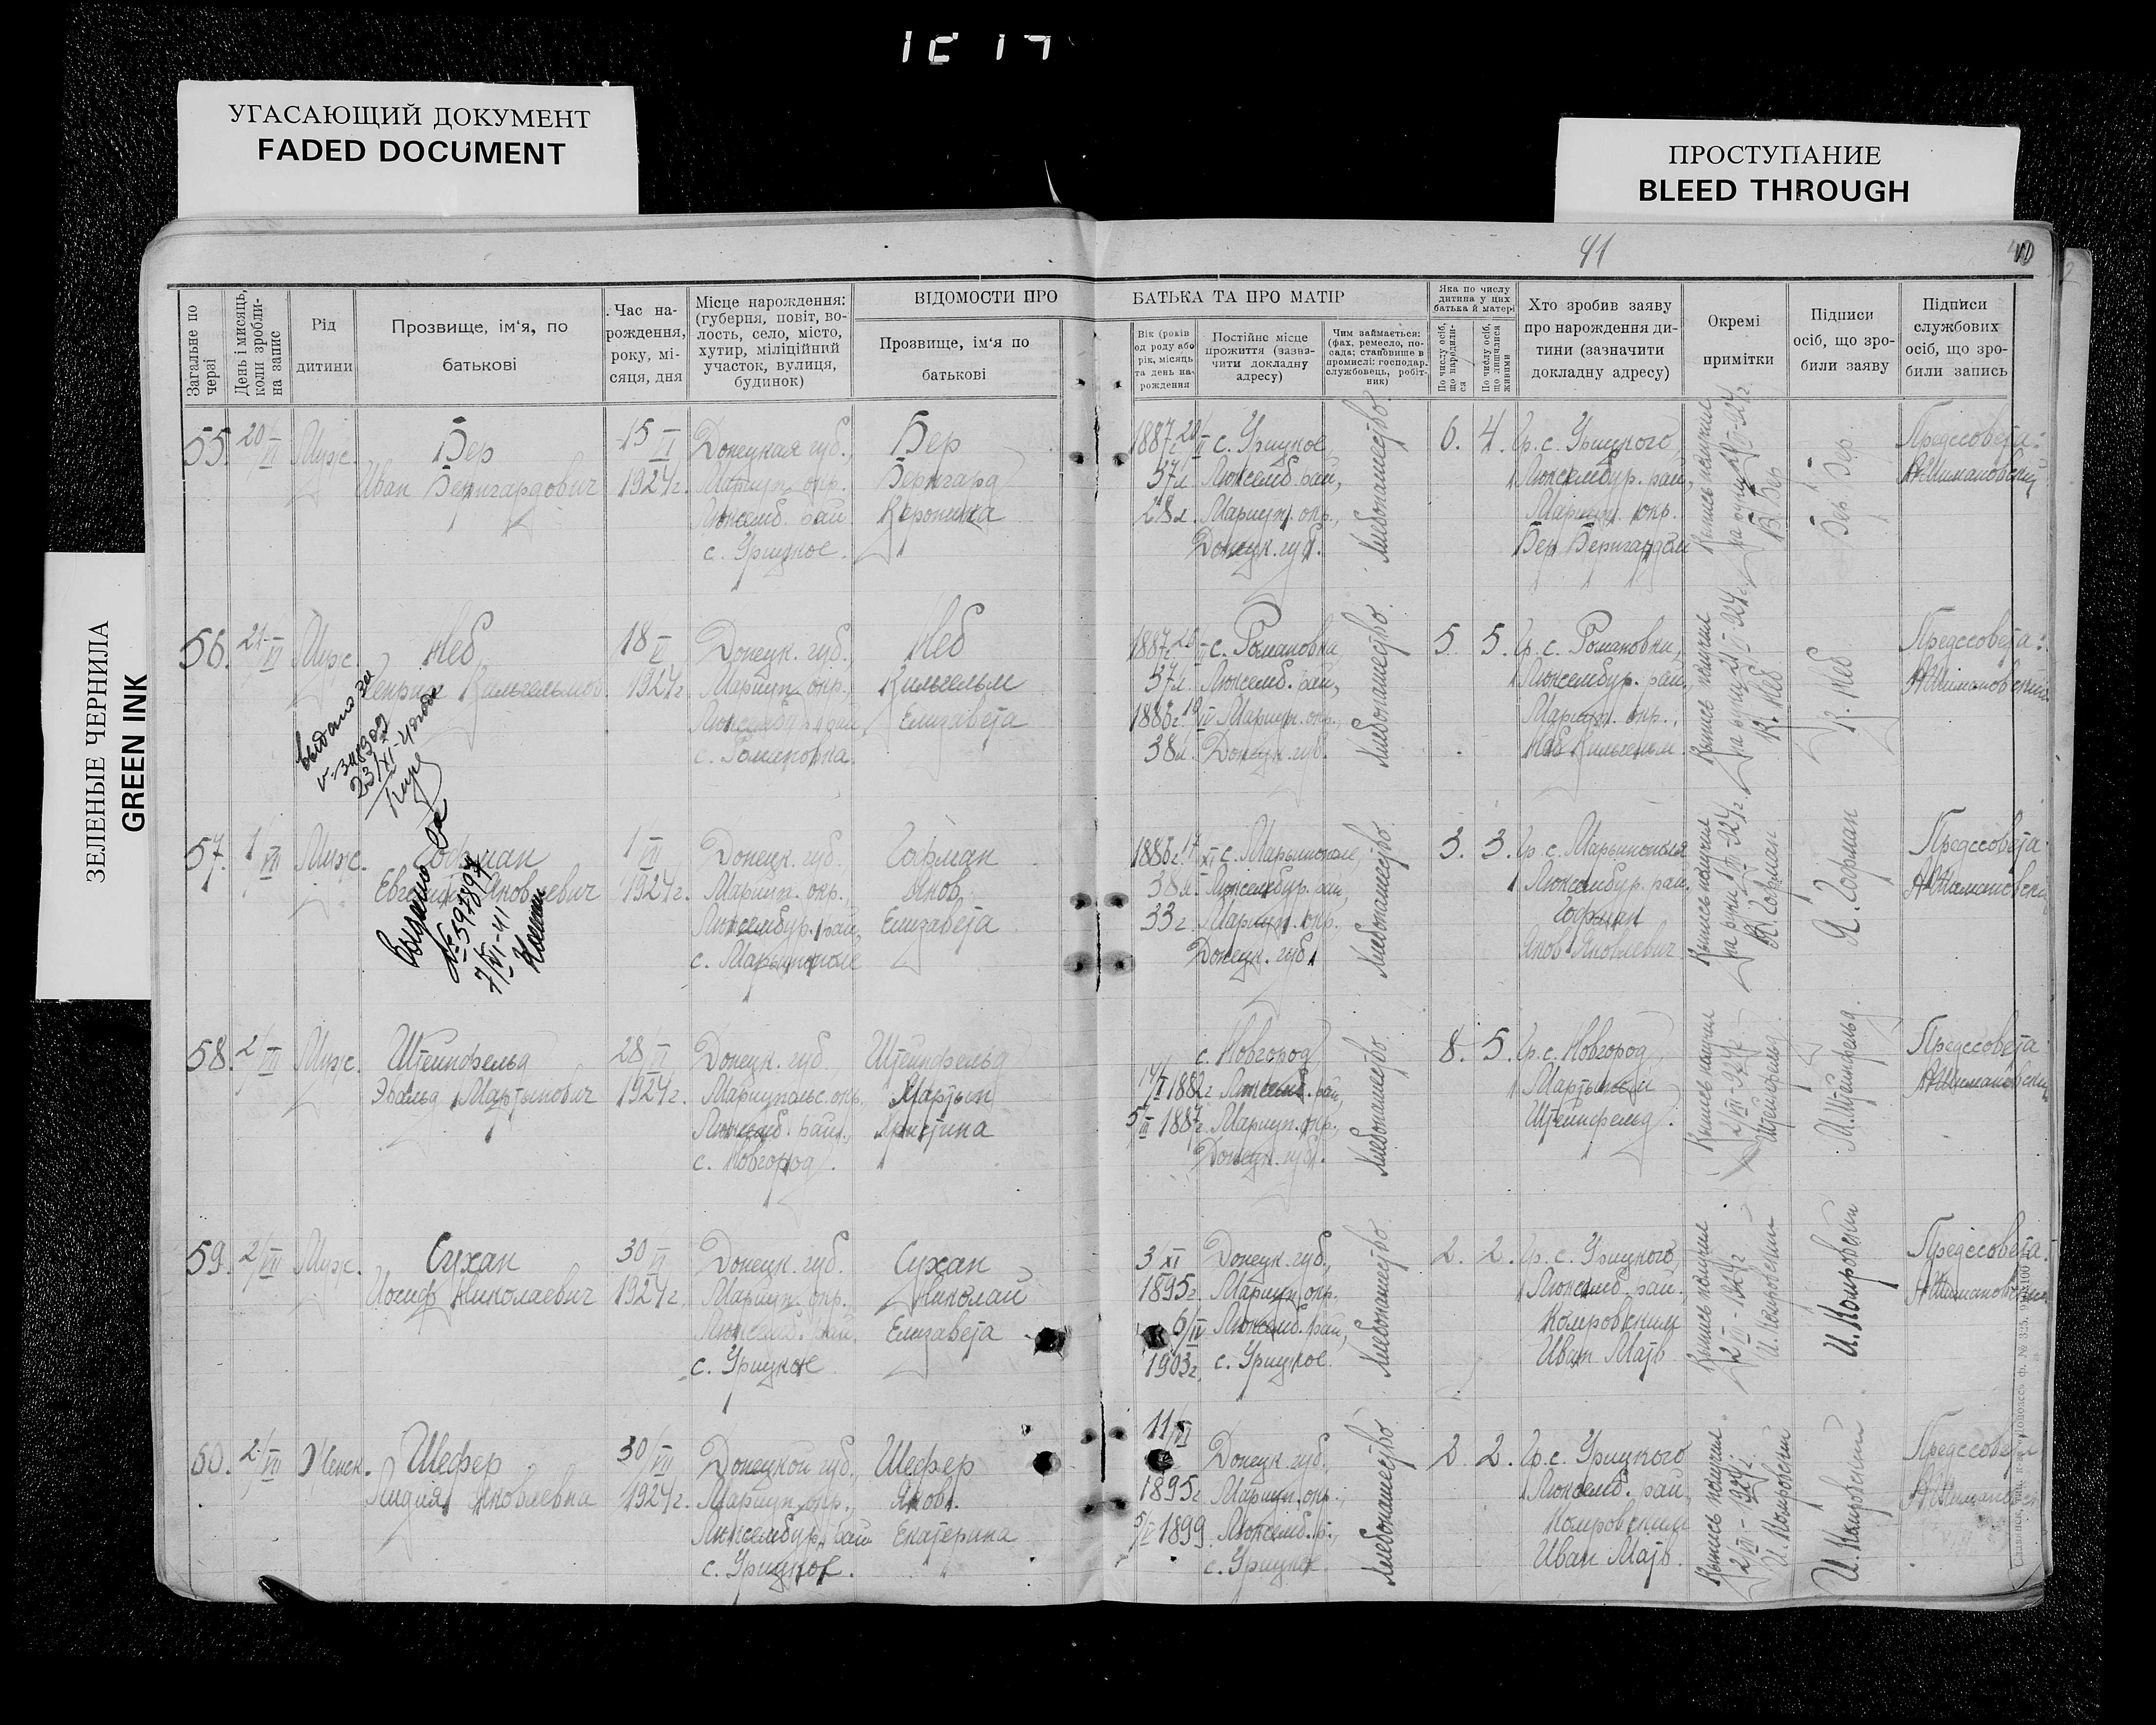 УГАСАЮЩИЙ ДОКУМЕНТ
FADED DOCUMENT
ПРОСТУПАНИЕ
BLEED THROUGH
ЗЕЛЕНЫЕ ЧЕРНИЛА
GREEN INK
41
Загальне по черзі
День і мисяць, коли зробили на запис
Рід дитини
Прозвище, ім'я, по батькові
Час нарождення, року, місяця, дня
Місце нарождення: (губерня, повіт, волость, село, місто, хутир, міліційний участок, вулиця, будинок)
ВІДОМОСТИ ПРО БАТЬКА ТА ПРО МАТІР
Прозвище, ім'я по батькові
Вік (років од роду або рік, місяць та день нарождення
Постійне місце прожиття (зазначити докладну адресу)
Чим займається: (фах, ремесло, посада; становище в промислі: господар, службовець, робітник)
Яка по числу дитина у цих батька й матері
По числу осіб, що народилися
По числу осіб, що лишилися живими
Хто зробив заяву про нарождення дитини (зазначити докладну адресу)
Окремі примітки
Підписи осіб, що зробили заяву
Підписи службових осіб, що зробили запись
55. 20/VI Муж.
Бер
Иван Бернгардович
15/VI
1924 г.
Донецкая губ.,
Мариуп. окр.
Люксемб. рай
с. Урицкое.
Бер
Бернгард
Вероника
1887 г. с. Урицкое,
37 л. Люксемб. рай,
28 л. Мариуп. окр.,
Донецк. губ.
Хлебопашество.
6. 4.
Гр. с. Урицкого,
Люксембур. рай,
Мариуп. окр.
Бер Бернгардом
Выпись получил
на руки
В. Бер
Бер
Предссовета:
56. 21/VI Муж.
18
1924 г.
Донецк. губ.,
Мариуп. окр.,
с. Романовка.
Вильгельм
Елизавета
1887 с. Романовка,
37 л. Люксемб. рай,
1886 г. Мариуп. окр.,
38 л. Донецк. губ.
Хлебопашество.
5. 5.
Гр. с. Романовки,
Люксембур. рай,
Мариуп. окр.,
Вильгельм.
Выпись получил
на руки
Предссовета:
выдано за
23/XI-40 года
57. 1/VII Муж.
Гофман
Евгений Яковлевич
1/VII
1924 г.
Донецк. губ.
Мариуп. окр.,
Люксембур. рай,
с. Марьинополе
Гофман
Яков
Елизавета
1886 г. с. Марьинополе,
38 л. Люксембур. рай,
33 г. Мариуп. окр.
Донецк. губ.
Хлебопашество.
3. 3.
Гр. с. Марьинополя
Люксембур. рай.
Гофман
Яков Яковлевич
Выпись получил
на руки 1/VII-924 г.
Я. Гофман
Я. Гофман
Предссовета
выдано за
№ 597897
7/VI-41
58. 2/VII Муж.
Штейнфельд
Эвальд Мартынович
28/VI
1924 г.
Донецк. губ.
Мариупольс. окр.,
Люксемб. рай.,
с. Новгород.
Штейнфельд
Мартын
Христина
с. Новгород
1882 г. Люксемб. рай,
1887 г. Мариуп. окр.,
Донецк. губ.
Хлебопашество.
8. 5.
Гр. с. Новгород,
Мартыном
Штейнфельд.
Выпись получил
2/VII-924 г.
Штейнфельд
М. Штейнфельд.
Предссовета
59. 2/VII Муж.
Сухан
Иосиф Николаевич
30/VI
1924 г.
Донецк. губ.
Мариуп. окр.
Люксемб. рай,
с. Урицкое
Сухан
Николай
Елизавета
3/XI Донецк. губ,
1895 г. Мариуп. окр.
6/IV Люксемб. рай,
1903 г. с. Урицкое.
Хлебопашество.
2. 2.
Гр. с. Урицкого,
Люксемб. рай.
Комровским
Иван Матв.
Выпись получил
2/VII-1924 г
И. Комровский
И. Комровский
Предссовета.
60. 2/VII Женск.
Шефер
Лидия Яковлевна
30/VII
1924 г.
Донецкой губ.,
Мариуп. окр.,
Люксембур. рай
с. Урицкое.
Шефер
Яков
Екатерина
11/VI Донецк. губ.,
1895 г. Мариуп. окр.,
1899 Люксемб. р.,
с. Урицкое.
Хлебопашество.
2. 2.
Гр. с. Урицкого
Люксемб. рай,
Комровским
Иван Матв.
Выпись получил
2/VII-924 г.
И. Комровский
И. Комровский
Предссовета